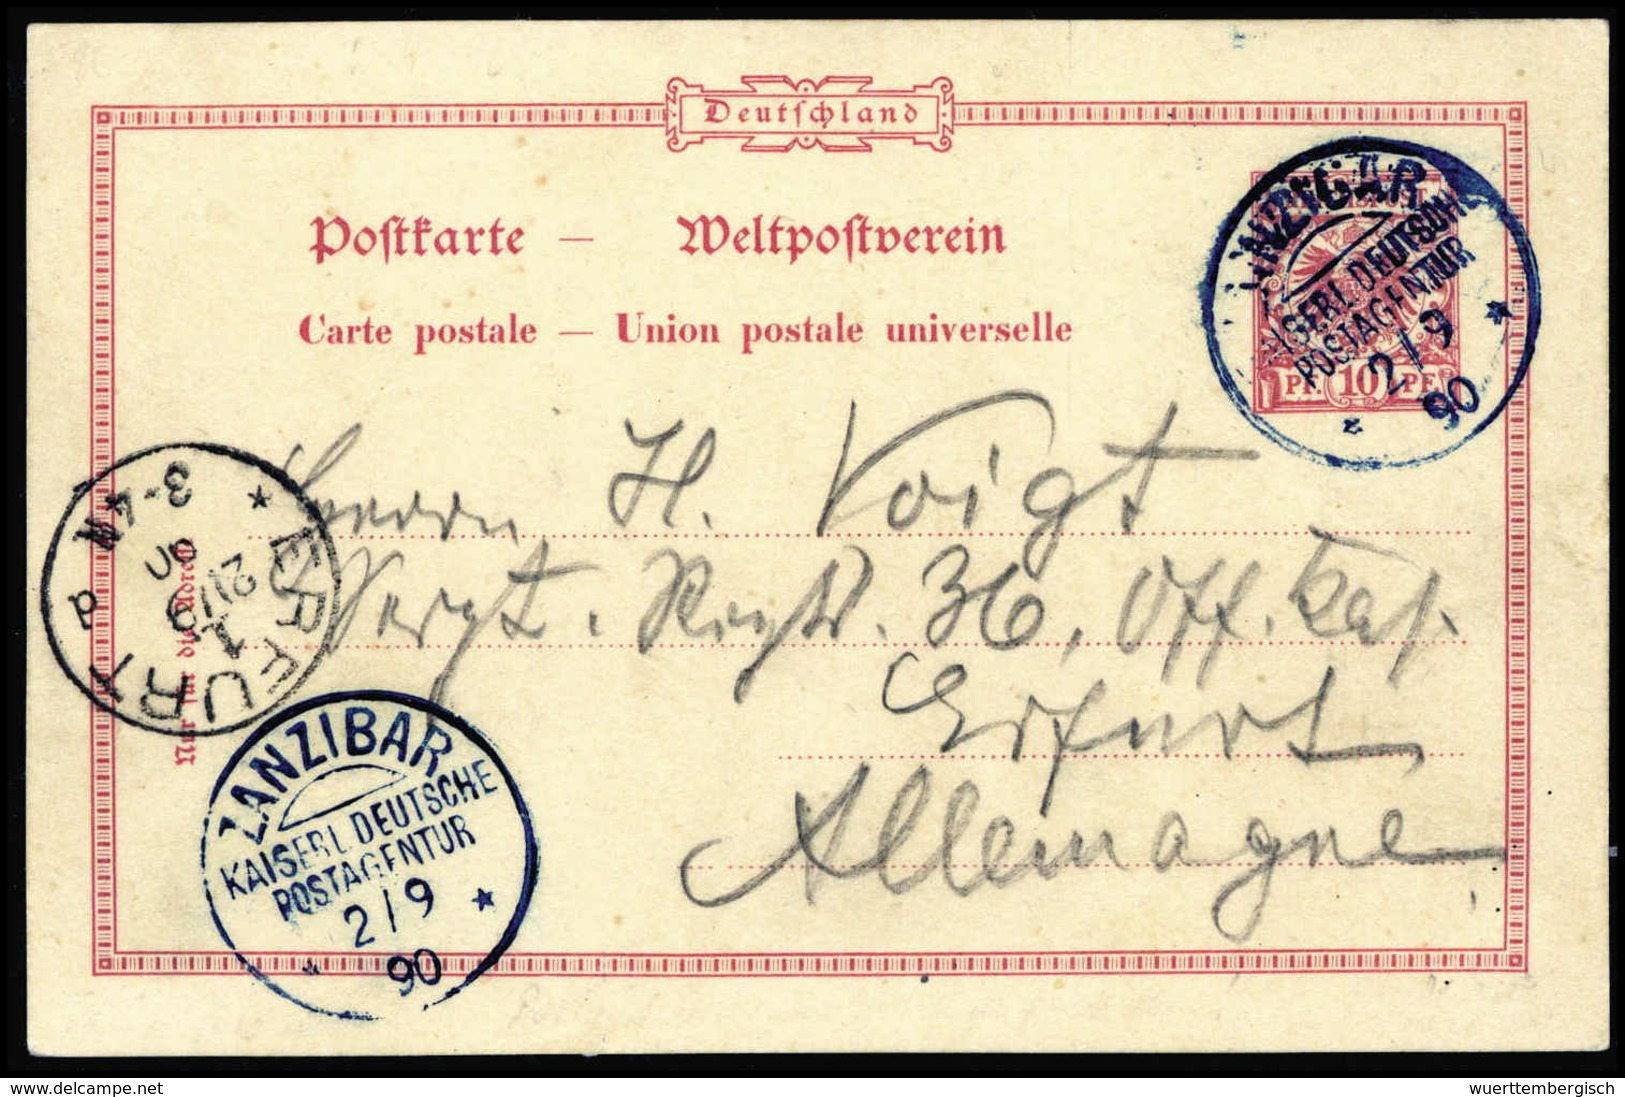 Deutschland
Postkarte — Weltpostverein
Carte postale — Union postale universelle
ZANZIBAR
KAISERL. DEUTSCHE
POSTAGENTUR
2/9
90
PF. 10 PF.
Herrn H. Voigt
Sergt. Regt. 36, Off. Kas.
Erfurt
Allemagne
ERFURT
1
21/9
90
3-4N
d
Nur für die Adresse
ZANZIBAR
KAISERL. DEUTSCHE
POSTAGENTUR
2/9
90
delcampe.net
wuerttembergisch